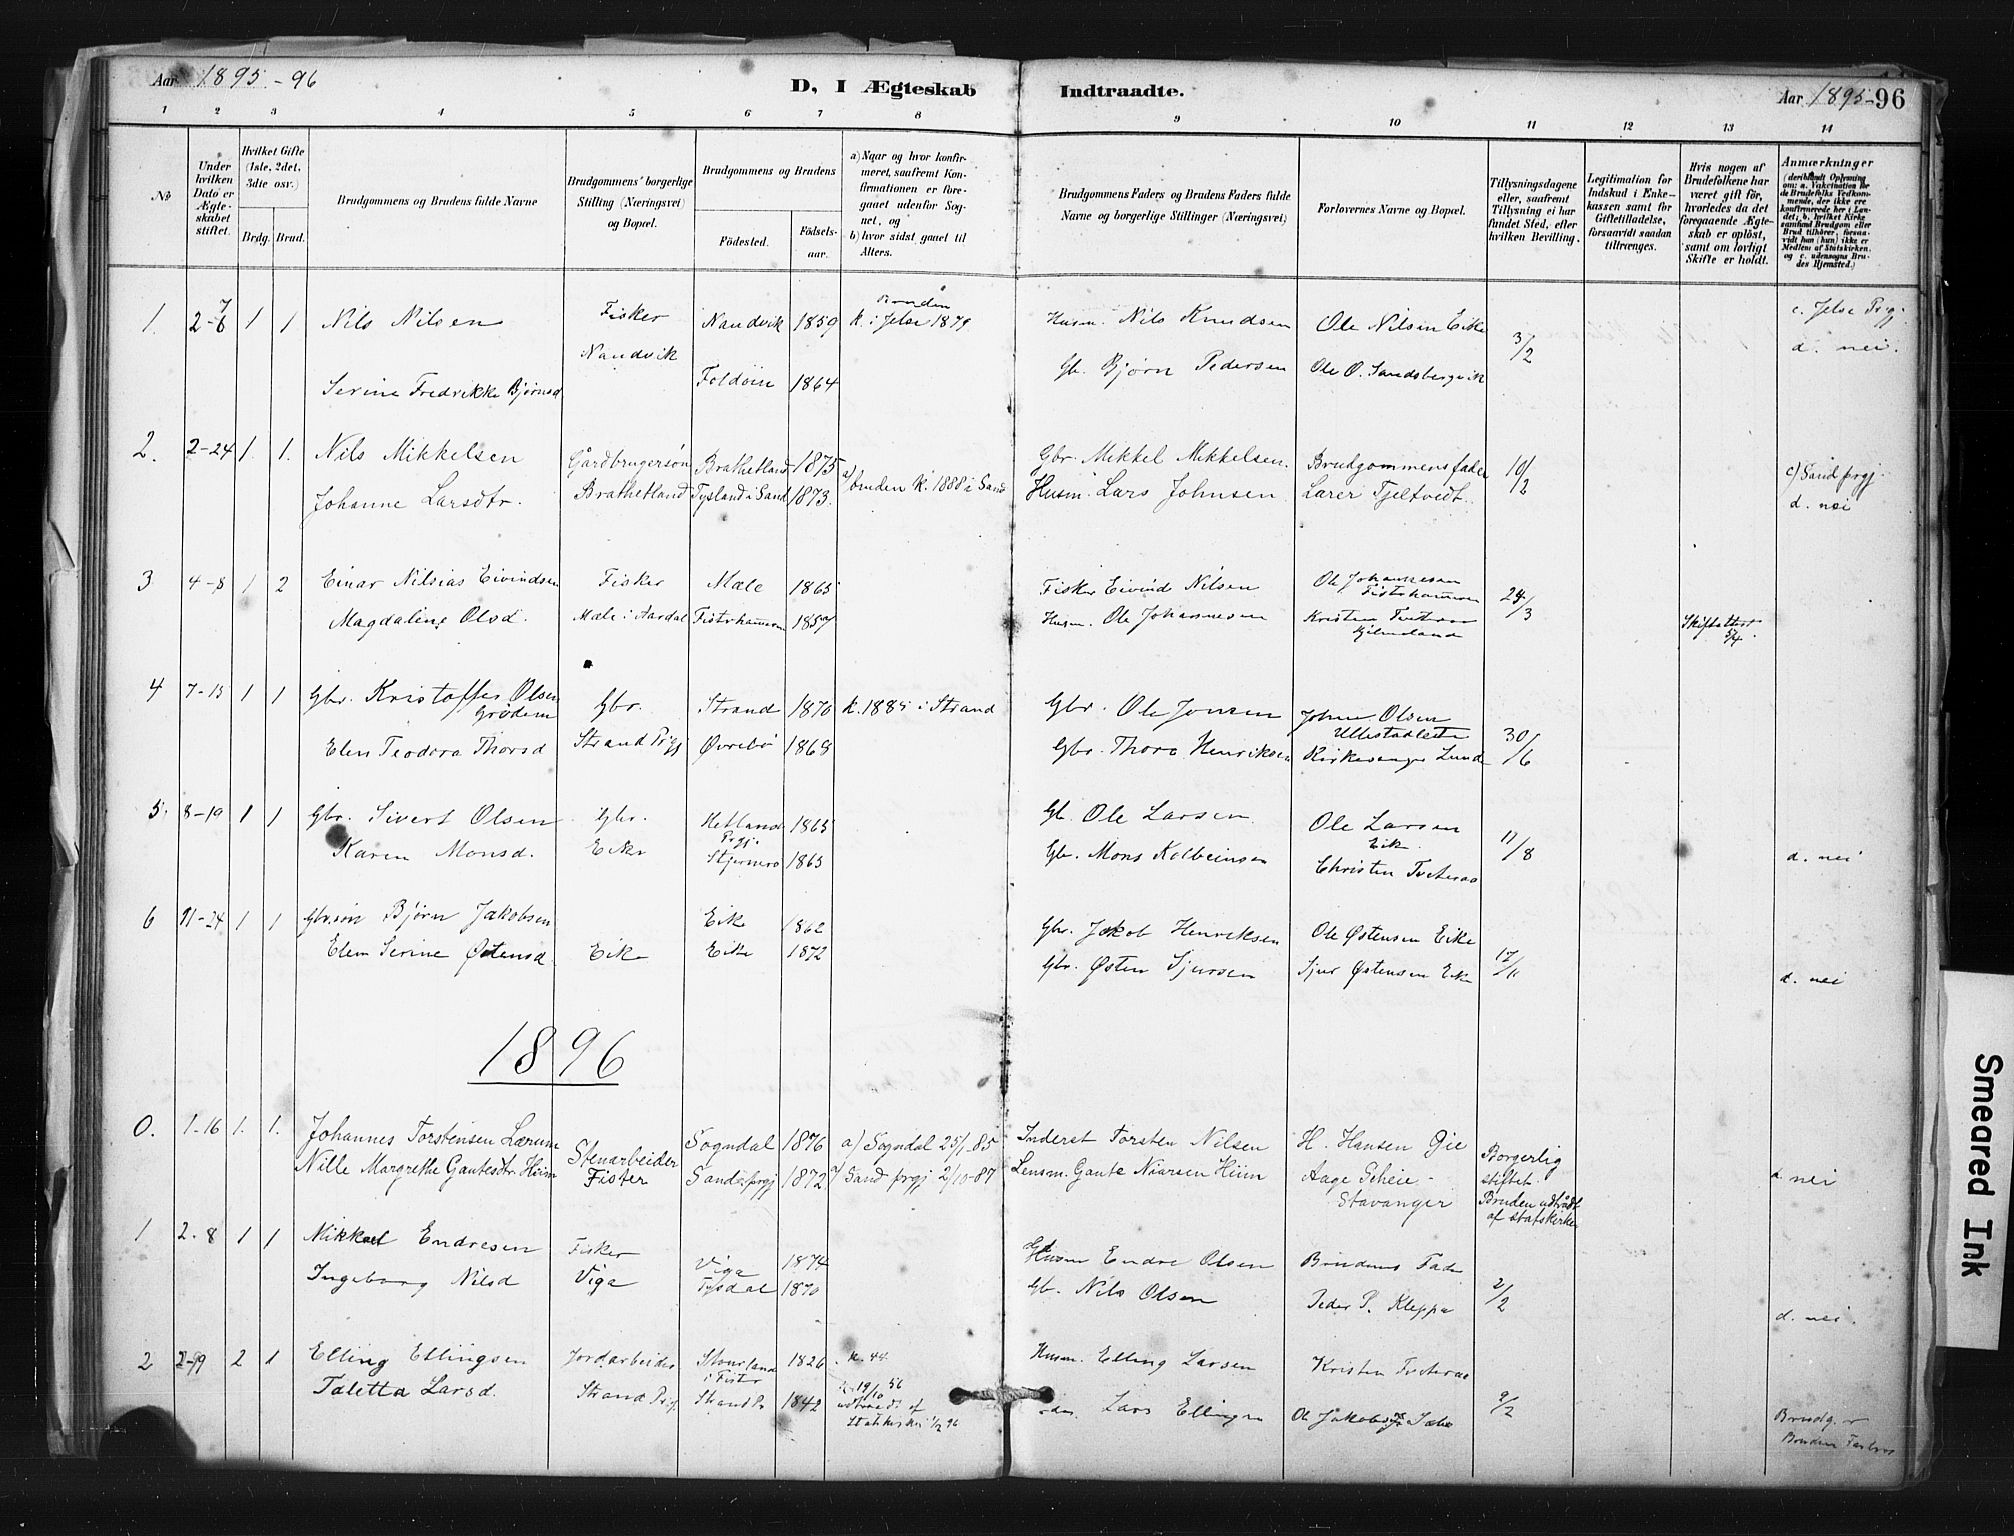 Aar 1895-96
D, I Ægteskab Indtraadte.
Aar 1895-96
1 2 3 4 5 6 7 8 9 10 11 12 13 14
No
Under hvilken Dato er Ægteskabet stiftet.
Hvilket Gifte (1ste, 2det, 3die osv.)
Brdg. Brud.
Brudgommens og Brudens fulde Navne
Brudgommens' borgerlige Stilling (Næringsvei) og Bopæl.
Brudgommens og Brudens
Fødested.
Fødselsaar.
a) Naar og hvor konfirmeret, saafremt Konfirmationen er foregaaet udenfor Sognet, og
b) hvor sidst gaaet til Alters.
Brudgommens Faders og Brudens Faders fulde Navne og borgerlige Stillinger (Næringsvei)
Forlovernes Navne og Bopæl.
Tillysningsdagene eller, saafremt Tillysning ei har fundet Sted, efter hvilken Bevilling.
Legitimation for Indskud i Enkekassen samt for Giftetilladelse, forsaavidt saadan tiltrænges.
Hvis nogen af Brudefolkene har været gift før, hvorledes da det foregaaende Ægteskab er opløst, samt om lovligt Skifte er holdt.
Anmærkninger (deriblandt Oplysning om: a. Vakcination for de Brudefolks Vedkommende, der ikke ere konfirmerede her i Landet; b. hvilket Kirkesamfund Brudgom eller Brud tilhører, forsaavidt han (hun) ikke er Medlem af Statskirken, og c. udensogns Brudes Hjemsted.)
1. 2-6 7 1 1 Nils Nilsen Fisker Nandvik 1859 Bruden k. i Jelse 1879 Husm. Nils Knudsen Ole Nilsen Eike 3/2 c. Jelse Prgj.
Nandvik d. nei.
Serine Fredrikke Bjørnsd Foldøen 1864 Gb. Bjørn Pedersen Ole O. Sandsbergvik
2. 2-24 1. 1. Nils Mikkelsen Gårdbrugersøn Brathetland 1875 Gbr. Mikkel Mikkelsen. Brudgommens fader 10/2 c) Sand prgj.
Johanne Larsdtr. Brathetland Tysland i Sand 1873. a) bruden k. 1888 i Sand Husm. Lars Johnsen Lærer Tjeltvedt. d. nei
3 4-8 1 2 Einar Nilsias Eivindsen Fisker Mæle 1865 Fisker Eivind Nilsen Ole Johannesen Fisterhamren 24/3
Magdalene Olsd. Mæle i Aardal Fisterhamren 1857 Husm. Ole Johannesen Kristen Tveteraa Skifteattest 5/4.
4 7-15 1 1 Gbr. Kristoffer Olsen Grødem Gbr. Strand 1870 k. 1885 i Strand Gbr. Ole Jonsen Johan Olsen 30/6
Elen Teodora Thorsd Strand Prgj Øvrebø 1868 Gbr. Thore Henriksen Kirkesanger Lund
5. 8-19 1 1 Gbr. Sivert Olsen Gbr. Hetland Prgj. 1865 Gb. Ole Larsen Ole Larsen Eik. 11/8
Karen Monsd. Eike Stjernerø 1865 Gb. Mons Kolbeinsen Christen Tveteraa d. nei
6 11-24 1 1 Gbr.søn Bjørn Jakobsen Eike 1862 Gbr. Jakob Henriksen Ole Østensen Eike 17/11
Elen Serine Østensd. Eike Eike 1872 Gbr. Østen Sjursen Sjur Østensen Eike d. nei
1896
0. 1-16 1. 1. Johannes Torstensen Lærum Stenarbeider Sogndal 1876 a) Sogndal 25/1-85 Inderst Torsten Nilsen H. Hansen Gie Borgerlig stiftet.
Nille Margrethe Gautesdtr. Hiim Fister Sand prgj 1872 Sand prgj 2/10-87 Lensm. Gaute Niarsen Hiim Aage Scheie - Stavanger Bruden udtrådt af statskirke d. nei
1 2-8 1 1 Mikkel Endresen Fisker Viga 1874 Husm Endre Olsen Brudens Fader 2/2
Ingeborg Nilsd Viga Tysdal 1870 Gb. Nils Olsen Peder P. Kleppa d. nei.
2 2-19 2 1 Elling Ellingsen Jordarbeider i Fister 1826 k. 44 Husm. Elling Larsen Kristen Tveteraa 9/2
Taletta Larsd. Strand Prgj. Strand Pr 1842 k. 19/10 56 udtraadt af Statskirken 1/2 96 Lars Ellingsen Brudg. og Bruden
Smeared Ink